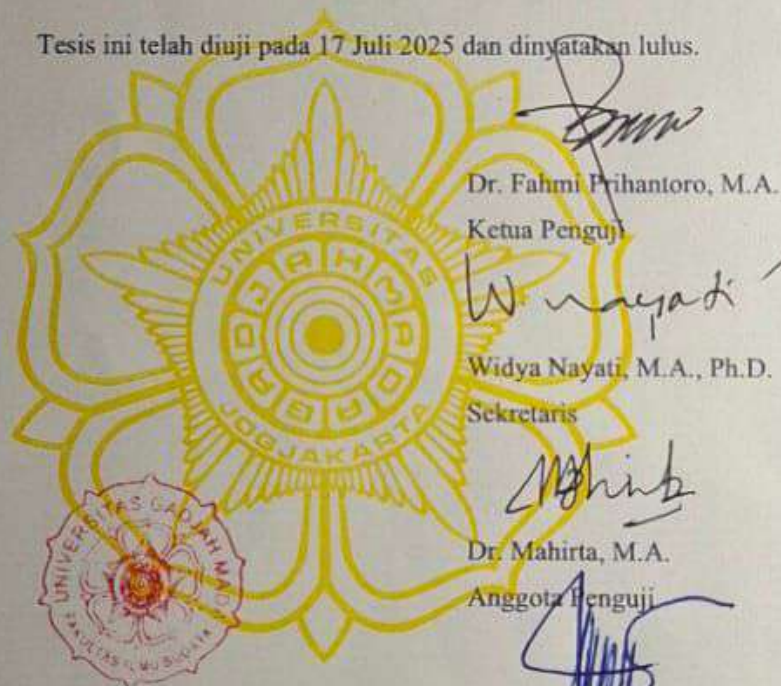 Tesis ini telah diuji pada 17 Juli 2025 dan dinyatakan lulus.
Dr. Fahmi Prihantoro, M.A.
Ketua Penguji
W nayati
Widya Nayati, M.A., Ph.D.
Sekretaris
Mahirta
Dr. Mahirta, M.A.
Anggota Penguji
UNIVERSITAS
GADJAH MADA
JOGJAKARTA
UNIVERSITAS GADJAH MADA
FAKULTAS ILMU BUDAYA